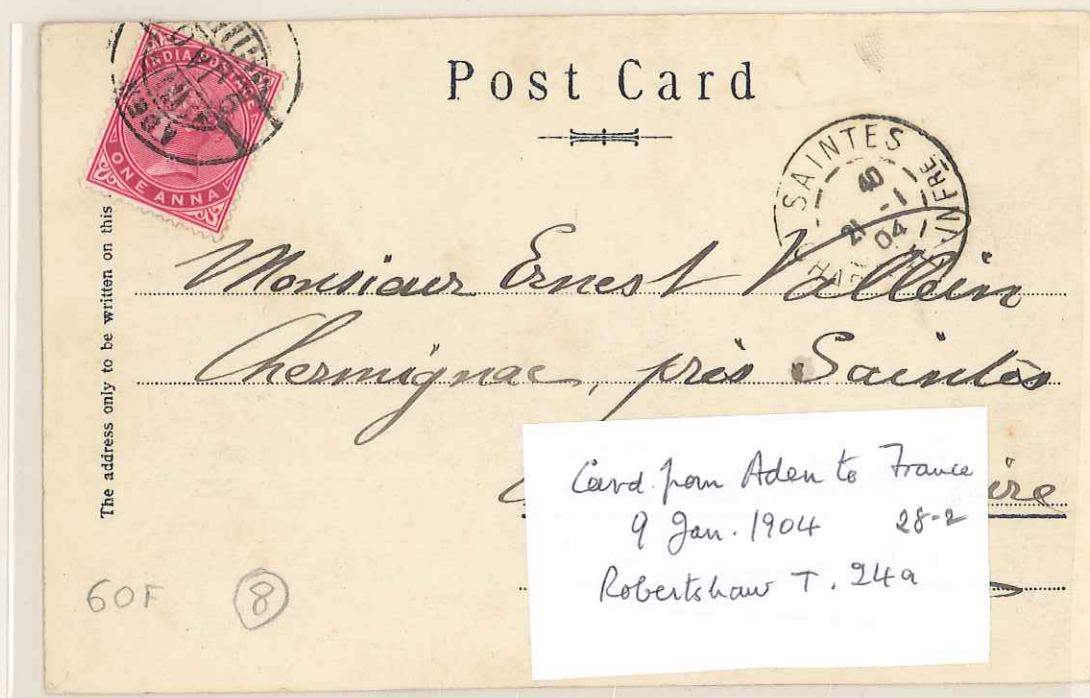 INDIA POSTAGE
ONE ANNA
Post Card
SAINTES
40
21 -1
04
The address only to be written on this
Monsieur Ernest Vallein
Chermignac, près Saintes
Card from Aden to France
9 Jan. 1904 28-2
Robertshaw T. 24a
60F
8